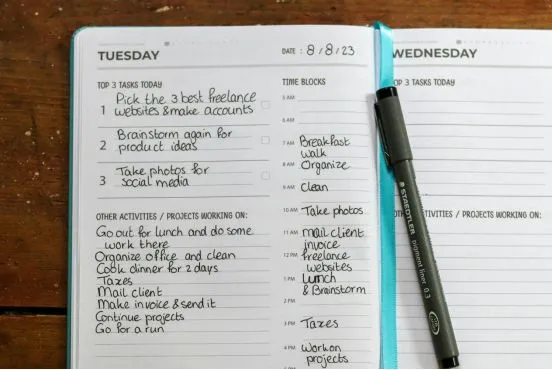 TUESDAY
DATE : 8/8/23
TOP 3 TASKS TODAY
1 Pick the 3 best freelance
websites & make accounts
2 Brainstorm again for
product ideas
3 Take photos for
social media
OTHER ACTIVITIES / PROJECTS WORKING ON:
Go out for lunch and do some
work there
Organize office and clean
Cook dinner for 2 days
Taxes
Mail client
Make invoice & send it
Continue projects
Go for a run
TIME BLOCKS
5 AM
6 AM
7 AM Breakfast
walk
8 AM Organize
9 AM Clean
10 AM Take photos
11 AM mail client
invoice
12 PM freelance
websites
1 PM Lunch
& Brainstorm
2 PM
3 PM Taxes
4 PM Work on
projects
WEDNESDAY
TOP 3 TASKS TODAY
ACTIVITIES / PROJECTS WORKING ON:
STAEDTLER pigment liner 0.3